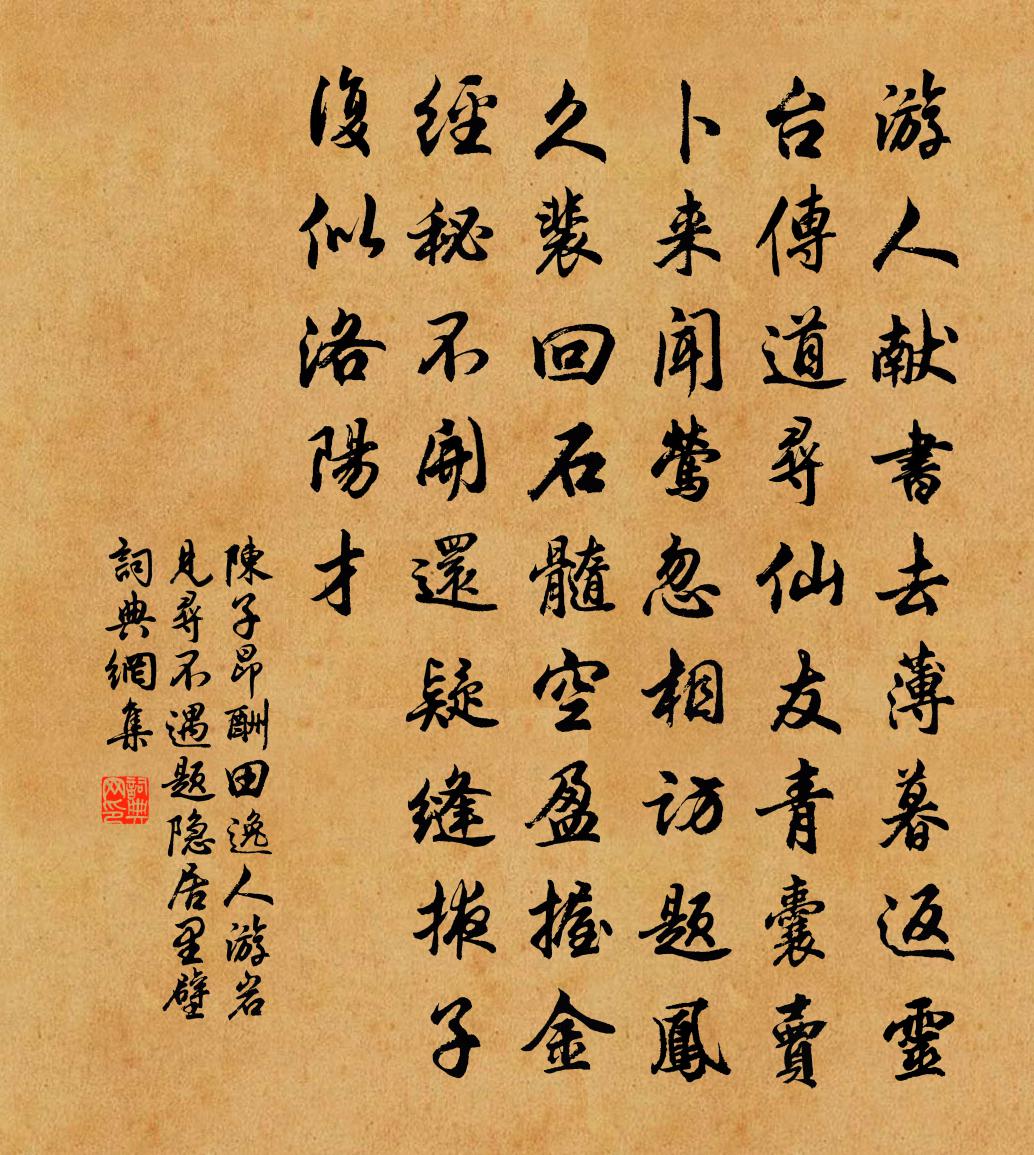 游人献書去薄暮返靈
台傳道尋仙友青囊賣
卜来聞鶯忽相訪題鳳
久裴回石髓空盈握金
經秘不開還疑縫掖子
復似洛陽才
陳子昂酬田逸人游岩
見尋不遇題隐居里壁
詞典網集
詞典网印